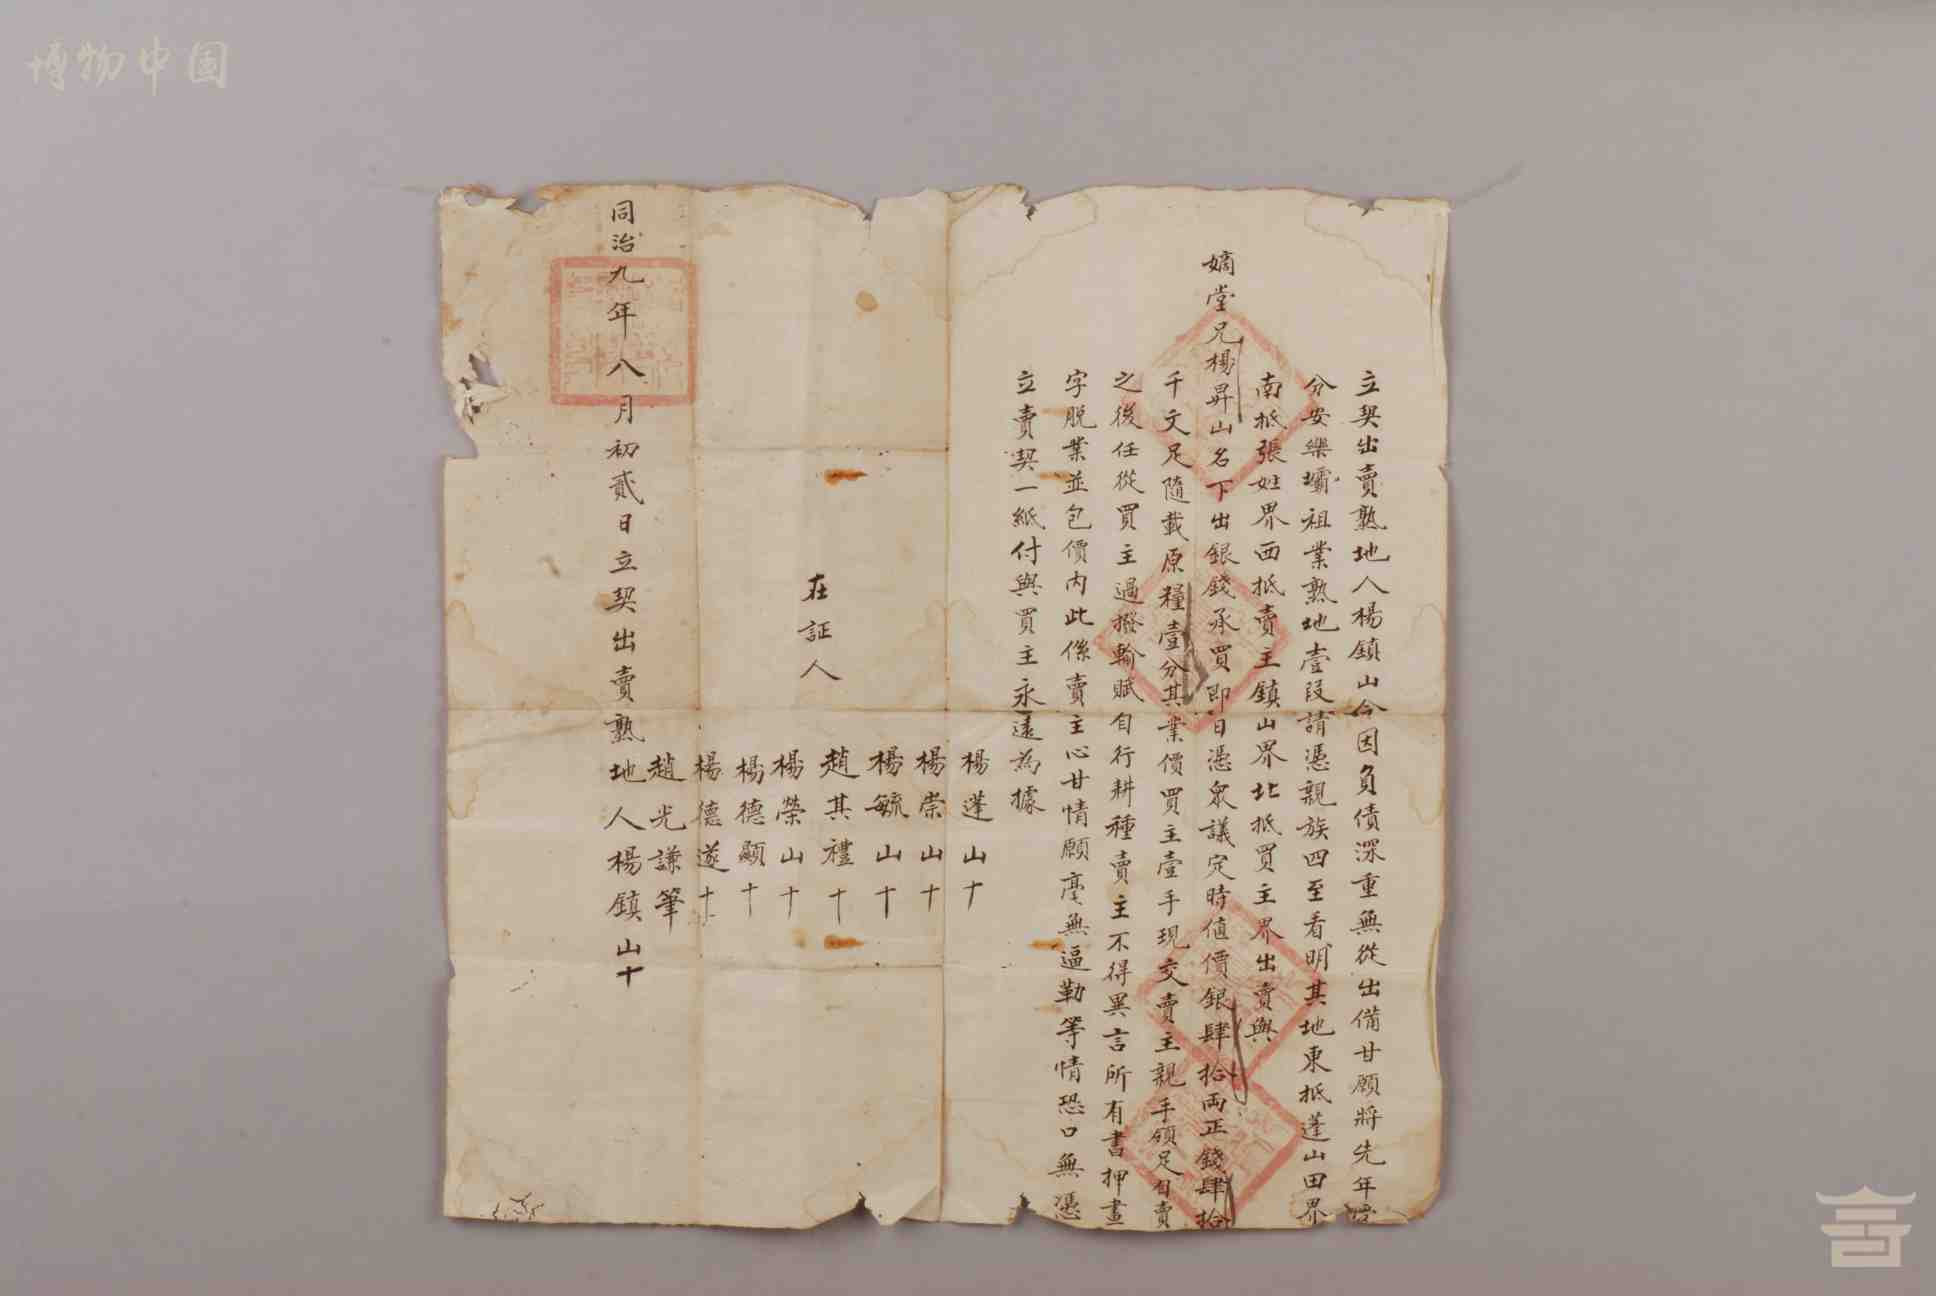 立契出賣熟地人楊鎮山今因負債深重無從出備甘願將先年
分安樂壩祖業熟地壹段請憑親族四至看明其地東抵蓬山田界
南抵張姓界西抵賣主鎮山界北抵買主界出賣與
嫡堂兄楊昇山名下出銀錢承買即日憑衆議定時值價銀肆拾兩正錢肆拾
千文足隨載原糧壹分其業價買主壹手現交賣主親手領足自賣
之後任從買主過撥輸賦自行耕種賣主不得異言所有書押畫
字脫業並包價內此係賣主心甘情願毫無逼勒等情恐口無憑
立賣契一紙付與買主永遠為據
在証人
楊蓬山十
楊崇山十
楊毓山十
趙其禮十
楊榮山十
楊德顯十
楊德遂十
趙光謙筆
同治九年八月初貳日立契出賣熟地人楊鎮山十
博物中国